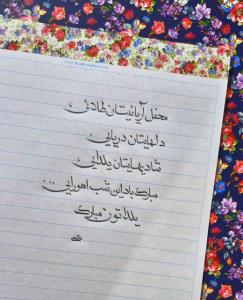 محفل آریائیتان طلائی
دلهایتان دریایی
شادیهایتان یلدایی
مبارک باد این شب اهورایی...
یلداتون مبارک